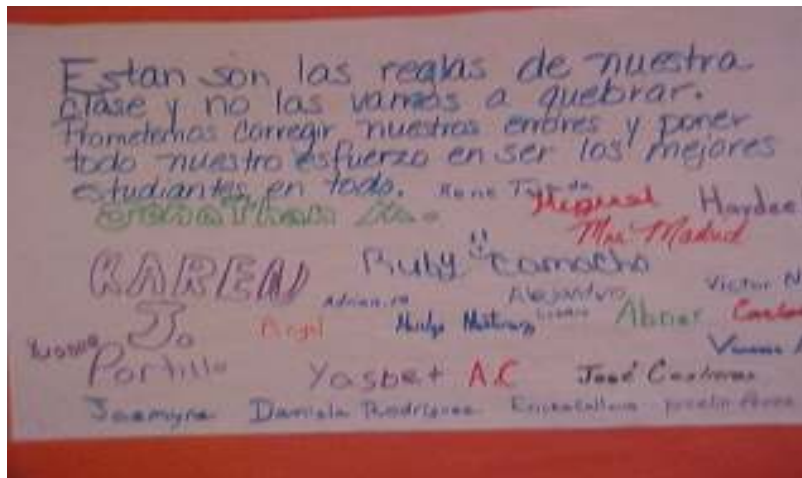 Estan son las reglas de nuestra
clase y no las vamos a quebrar.
Prometemos corregir nuestros errores y poner
todo nuestro esfuerzo en ser los mejores
estudiantes en todo. Rene
Jonathan Haydee
Mrs. Madrid
KAREN Ruby Camacho
Adrian Alejandro Victor N
J. Angel Martinez Abner
Yvonne
Portillo Yasbet A.C José Contreras
Jasmyne Daniela Rodriguez